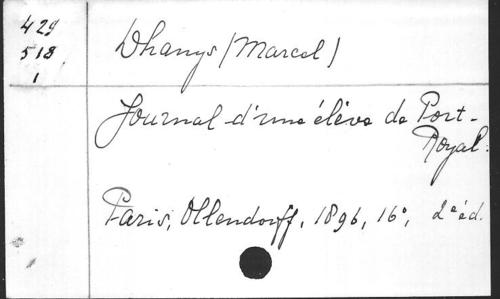 429
518
1
Dhanys (Marcel)
Journal d'une élève de Port-
Royal.
Paris, Ollendorff, 1896, 16°, 2e éd.